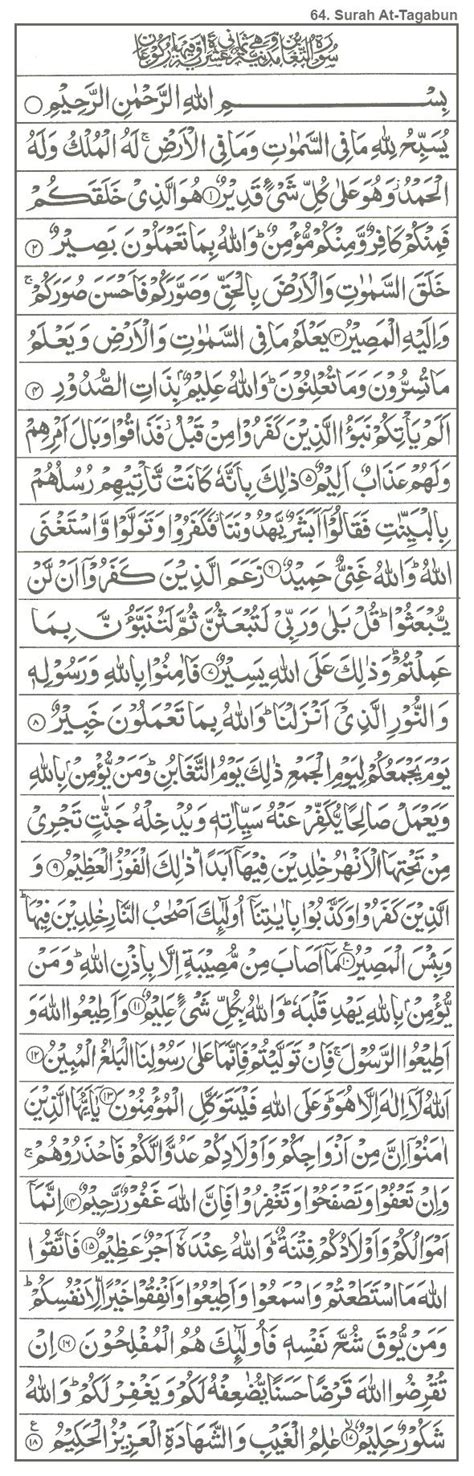 64. Surah At-Tagabun
سُوْرَةُ التَّغَابُنِ مَدَنِيَّةٌ وَّهِيَ ثَمَانِيَ عَشْرَةَ اٰيَةً وَّفِيْهَا رُكُوْعَانِ
بِسْمِ اللهِ الرَّحْمٰنِ الرَّحِيْمِ
يُسَبِّحُ لِلّٰهِ مَا فِي السَّمٰوٰتِ وَمَا فِي الْاَرْضِ ۚ لَهُ الْمُلْكُ وَلَهُ
الْحَمْدُ ۫ وَهُوَ عَلٰى كُلِّ شَيْءٍ قَدِيْرٌ ﴿۱﴾ هُوَ الَّذِيْ خَلَقَكُمْ
فَمِنْكُمْ كَافِرٌ وَّمِنْكُمْ مُّؤْمِنٌ ؕ وَاللهُ بِمَا تَعْمَلُوْنَ بَصِيْرٌ ﴿۲﴾
خَلَقَ السَّمٰوٰتِ وَالْاَرْضَ بِالْحَقِّ وَصَوَّرَكُمْ فَاَحْسَنَ صُوَرَكُمْ ۚ
وَاِلَيْهِ الْمَصِيْرُ ﴿۳﴾ يَعْلَمُ مَا فِي السَّمٰوٰتِ وَالْاَرْضِ وَيَعْلَمُ
مَا تُسِرُّوْنَ وَمَا تُعْلِنُوْنَ ؕ وَاللهُ عَلِيْمٌۢ بِذَاتِ الصُّدُوْرِ ﴿۴﴾
اَلَمْ يَاْتِكُمْ نَبَؤُا الَّذِيْنَ كَفَرُوْا مِنْ قَبْلُ ۫ فَذَاقُوْا وَبَالَ اَمْرِهِمْ
وَلَهُمْ عَذَابٌ اَلِيْمٌ ﴿۵﴾ ذٰلِكَ بِاَنَّهٗ كَانَتْ تَّاْتِيْهِمْ رُسُلُهُمْ
بِالْبَيِّنٰتِ فَقَالُوْۤا اَبَشَرٌ يَّهْدُوْنَنَا ۫ فَكَفَرُوْا وَتَوَلَّوْا وَّاسْتَغْنَى
اللهُ ؕ وَاللهُ غَنِيٌّ حَمِيْدٌ ﴿۶﴾ زَعَمَ الَّذِيْنَ كَفَرُوْۤا اَنْ لَّنْ
يُّبْعَثُوْا ؕ قُلْ بَلٰى وَرَبِّيْ لَتُبْعَثُنَّ ثُمَّ لَتُنَبَّؤُنَّ بِمَا
عَمِلْتُمْ ؕ وَذٰلِكَ عَلَى اللهِ يَسِيْرٌ ﴿۷﴾ فَاٰمِنُوْا بِاللهِ وَرَسُوْلِهٖ
وَالنُّوْرِ الَّذِيْۤ اَنْزَلْنَا ؕ وَاللهُ بِمَا تَعْمَلُوْنَ خَبِيْرٌ ﴿۸﴾
يَوْمَ يَجْمَعُكُمْ لِيَوْمِ الْجَمْعِ ذٰلِكَ يَوْمُ التَّغَابُنِ ؕ وَمَنْ يُّؤْمِنْۢ بِاللهِ
وَيَعْمَلْ صَالِحًا يُّكَفِّرْ عَنْهُ سَيِّاٰتِهٖ وَيُدْخِلْهُ جَنّٰتٍ تَجْرِيْ
مِنْ تَحْتِهَا الْاَنْهٰرُ خٰلِدِيْنَ فِيْهَاۤ اَبَدًا ؕ ذٰلِكَ الْفَوْزُ الْعَظِيْمُ ﴿۹﴾ وَ
الَّذِيْنَ كَفَرُوْا وَكَذَّبُوْا بِاٰيٰتِنَاۤ اُولٰٓئِكَ اَصْحٰبُ النَّارِ خٰلِدِيْنَ فِيْهَا ؕ
وَبِئْسَ الْمَصِيْرُ ﴿۱۰﴾ مَاۤ اَصَابَ مِنْ مُّصِيْبَةٍ اِلَّا بِاِذْنِ اللهِ ؕ وَمَنْ
يُّؤْمِنْۢ بِاللهِ يَهْدِ قَلْبَهٗ ؕ وَاللهُ بِكُلِّ شَيْءٍ عَلِيْمٌ ﴿۱۱﴾ وَاَطِيْعُوا اللهَ وَ
اَطِيْعُوا الرَّسُوْلَ ۚ فَاِنْ تَوَلَّيْتُمْ فَاِنَّمَا عَلٰى رَسُوْلِنَا الْبَلٰغُ الْمُبِيْنُ ﴿۱۲﴾
اَللهُ لَاۤ اِلٰهَ اِلَّا هُوَ ؕ وَعَلَى اللهِ فَلْيَتَوَكَّلِ الْمُؤْمِنُوْنَ ﴿۱۳﴾ يٰۤاَيُّهَا الَّذِيْنَ
اٰمَنُوْۤا اِنَّ مِنْ اَزْوَاجِكُمْ وَاَوْلَادِكُمْ عَدُوًّا لَّكُمْ فَاحْذَرُوْهُمْ ۚ
وَاِنْ تَعْفُوْا وَتَصْفَحُوْا وَتَغْفِرُوْا فَاِنَّ اللهَ غَفُوْرٌ رَّحِيْمٌ ﴿۱۴﴾ اِنَّمَاۤ
اَمْوَالُكُمْ وَاَوْلَادُكُمْ فِتْنَةٌ ؕ وَاللهُ عِنْدَهٗۤ اَجْرٌ عَظِيْمٌ ﴿۱۵﴾ فَاتَّقُوا
اللهَ مَا اسْتَطَعْتُمْ وَاسْمَعُوْا وَاَطِيْعُوْا وَاَنْفِقُوْا خَيْرًا لِّاَنْفُسِكُمْ ؕ
وَمَنْ يُّوْقَ شُحَّ نَفْسِهٖ فَاُولٰٓئِكَ هُمُ الْمُفْلِحُوْنَ ﴿۱۶﴾ اِنْ
تُقْرِضُوا اللهَ قَرْضًا حَسَنًا يُّضٰعِفْهُ لَكُمْ وَيَغْفِرْ لَكُمْ ؕ وَاللهُ
شَكُوْرٌ حَلِيْمٌ ﴿۱۷﴾ عٰلِمُ الْغَيْبِ وَالشَّهَادَةِ الْعَزِيْزُ الْحَكِيْمُ ﴿۱۸﴾ ع